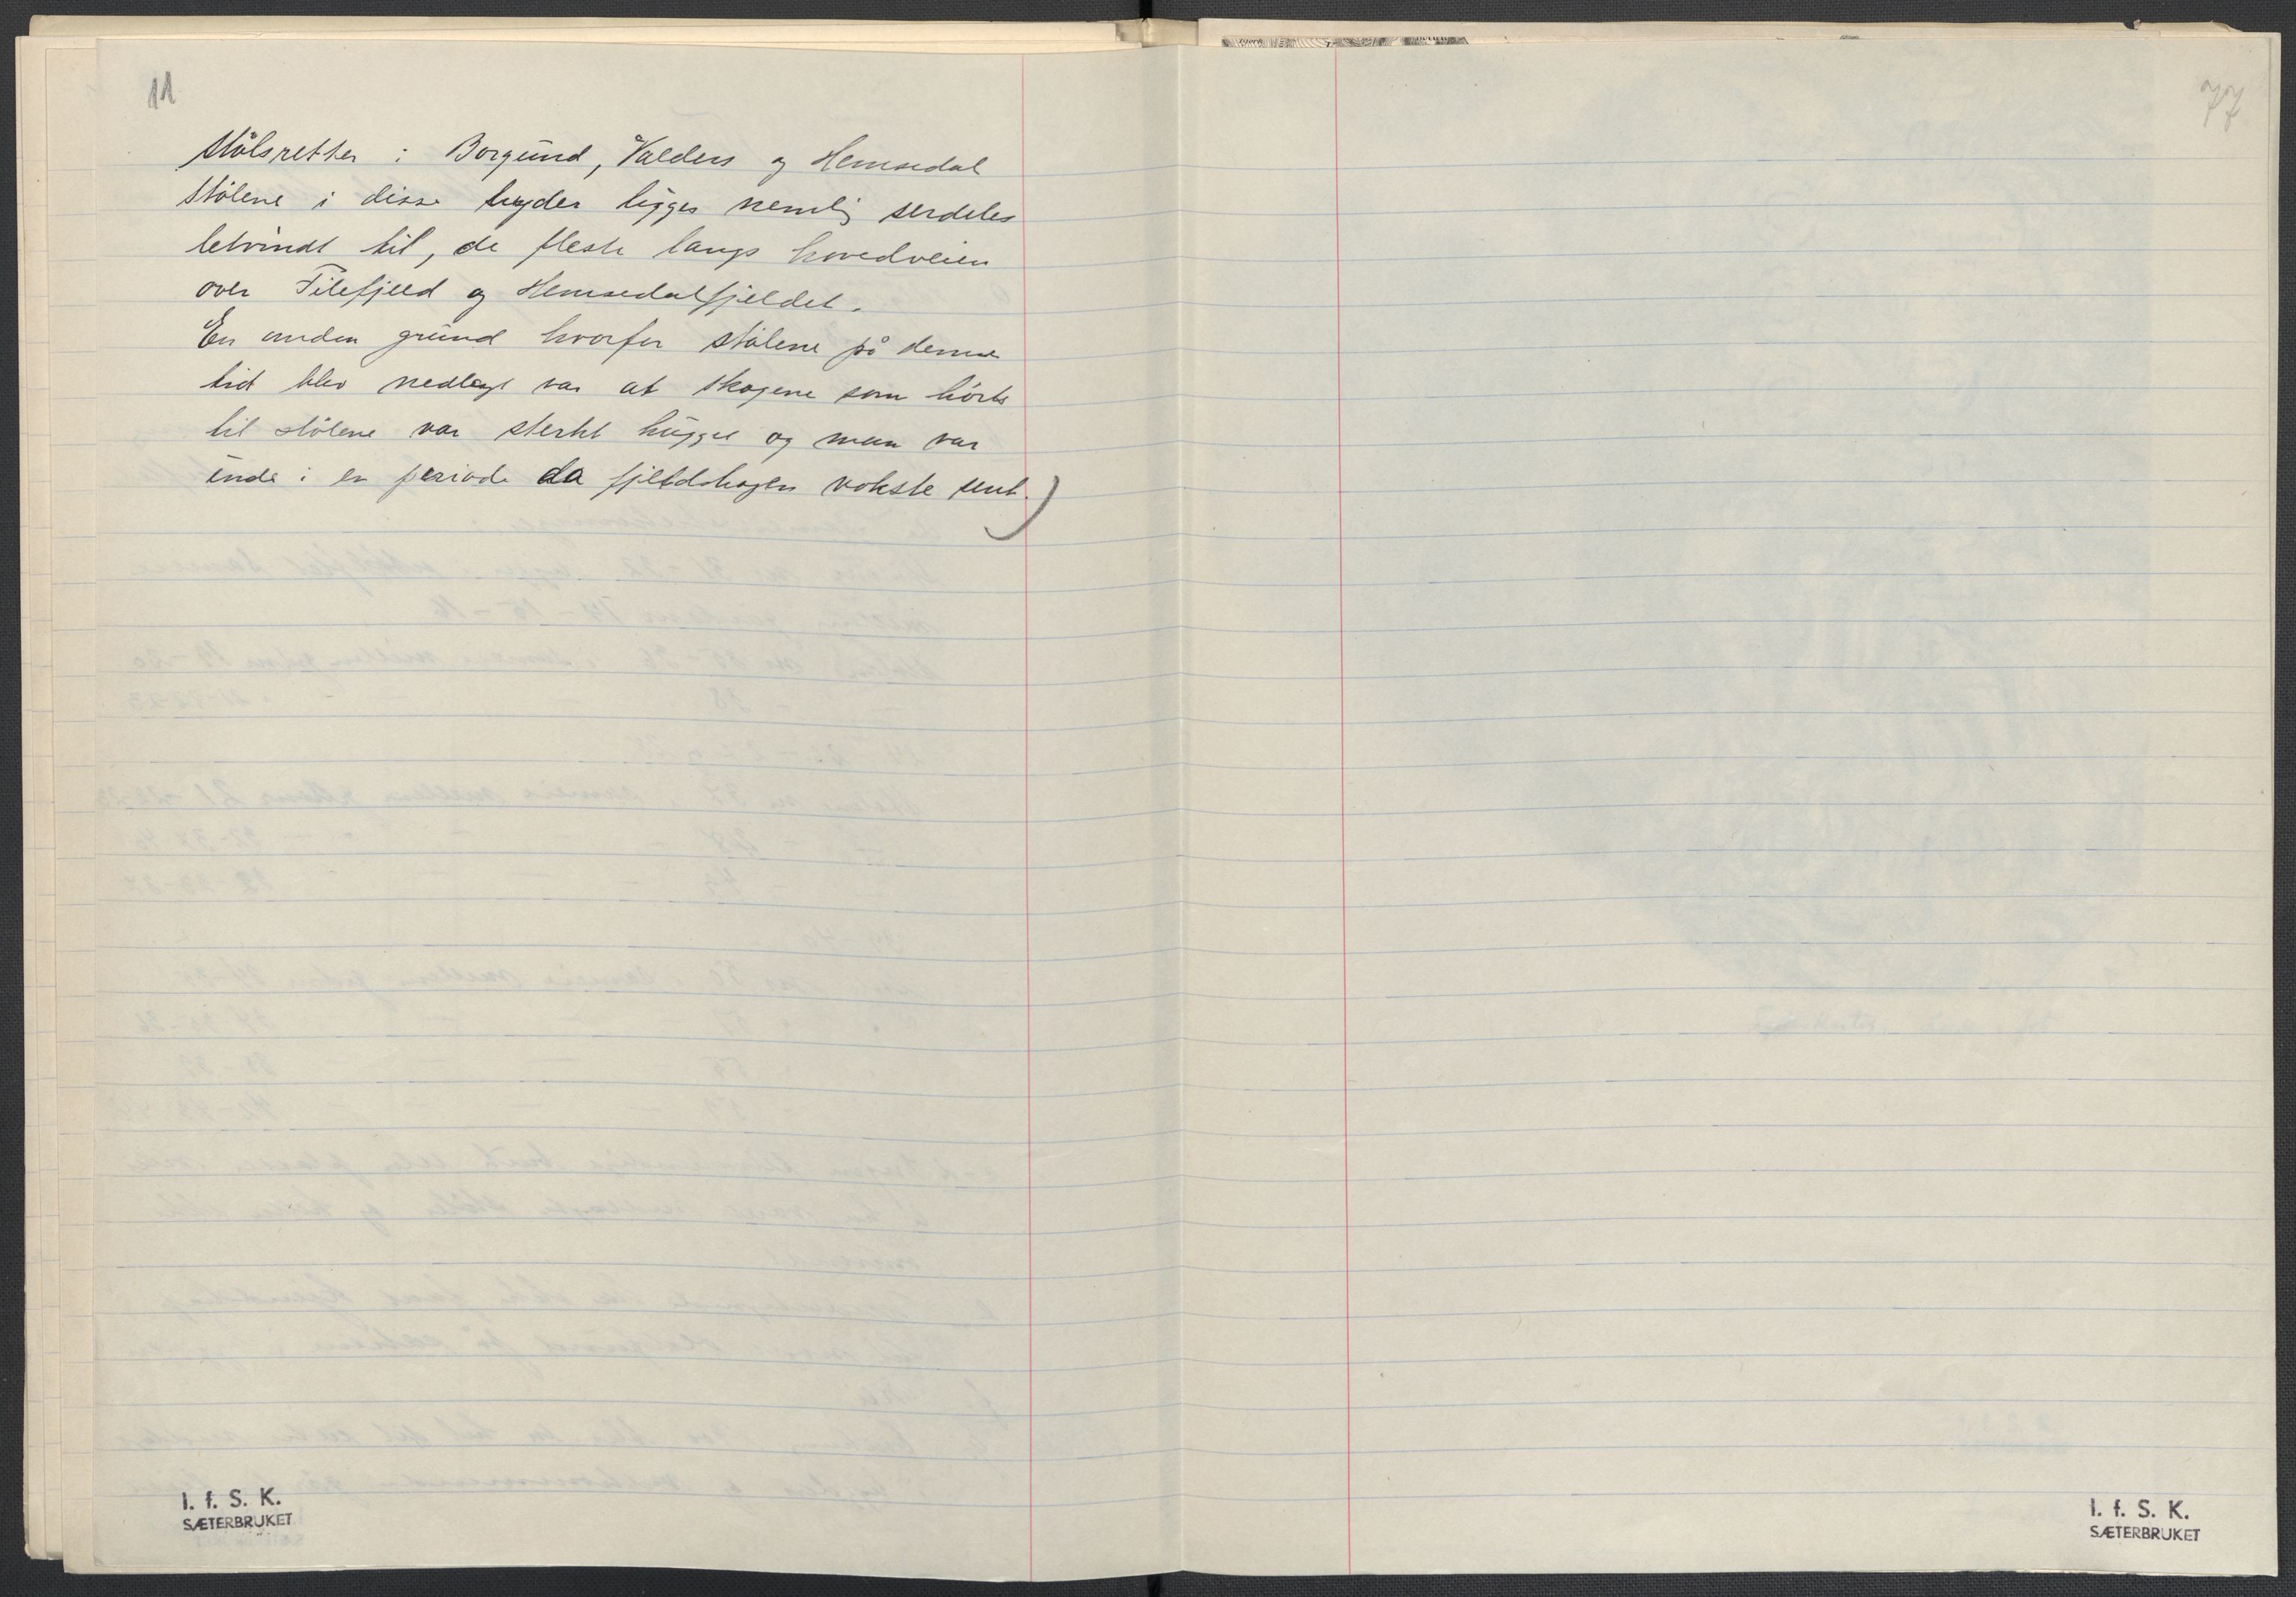 11
stölsretter i Borgund, Valders og Hemsedal
Stölene i disse bygder ligger nemlig serdeles
letvindt til, de fleste langs hovedveien
over Filefjeld og Hemsedalfjeldet.
En anden grund hvorfor stölene på denne
tid blev nedlagt var at skogene som hörte
til stölene var sterkt hugget og man var
inde i en periode da fjeldskogen vokste sent.)
I. f. S. K.
SÆTERBRUKET
77
I. f. S. K.
SÆTERBRUKET